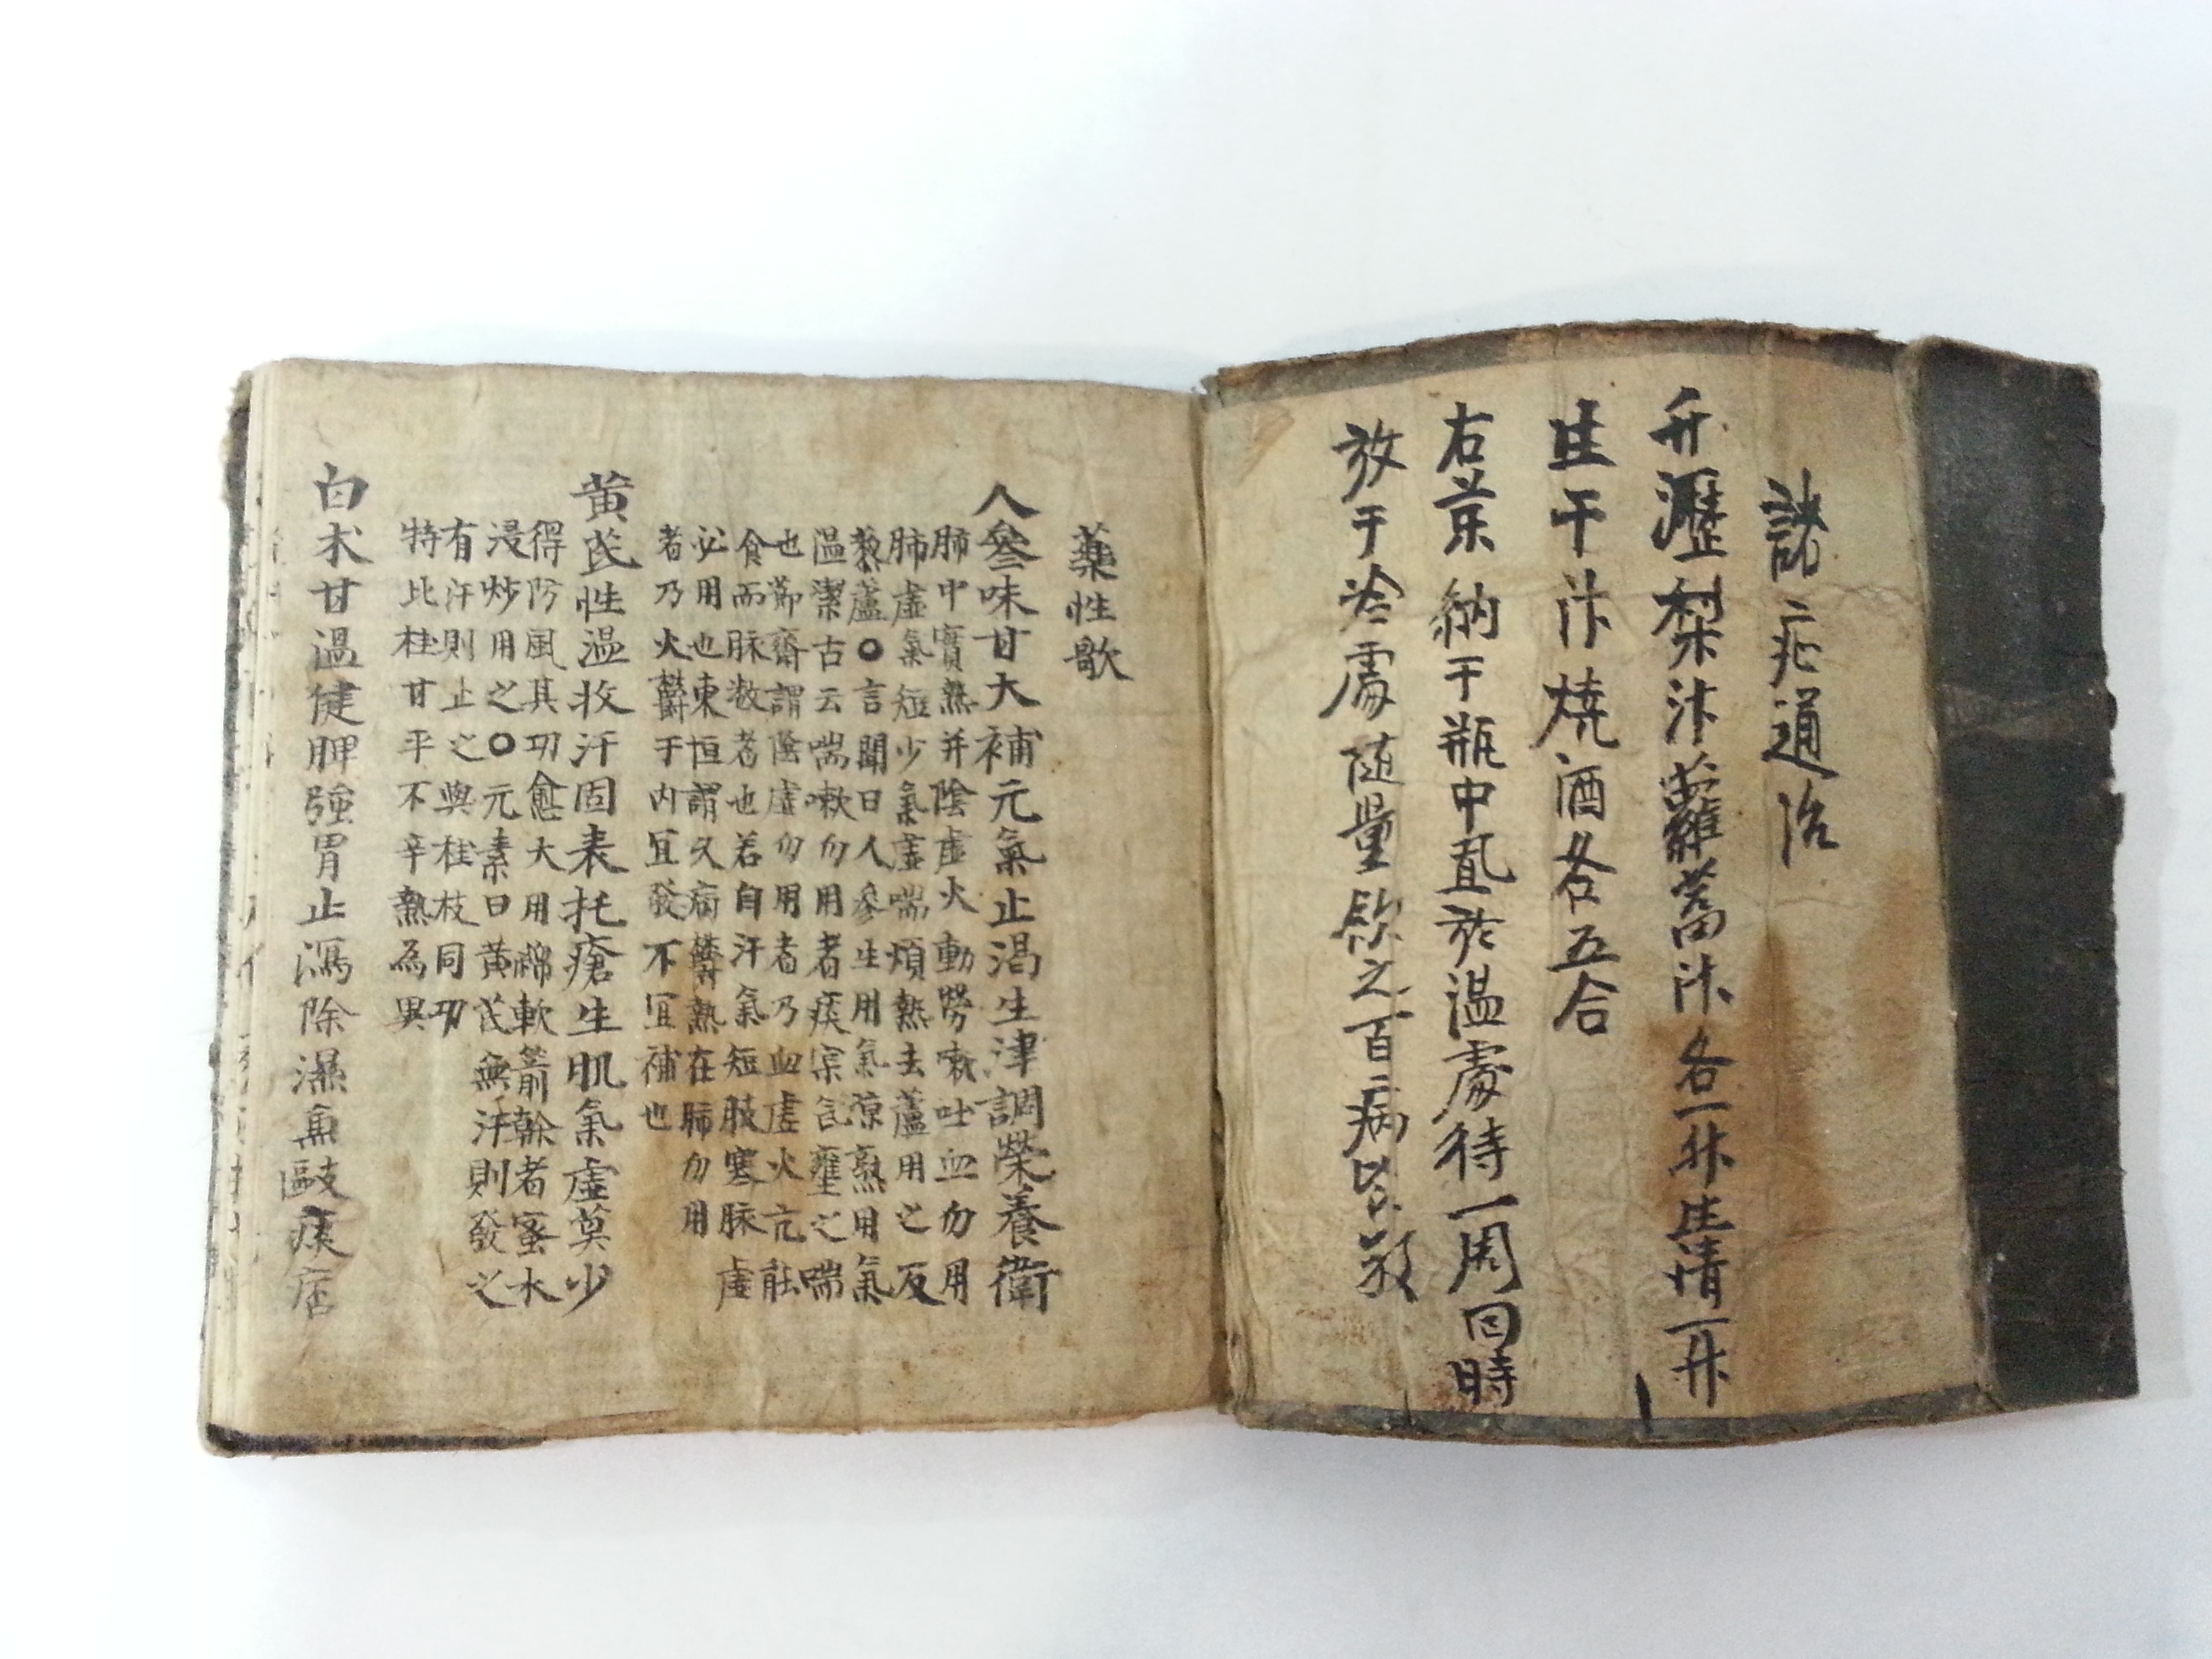 諸疒通治
竹瀝梨汁蘿蔔汁各一升生清一升
生干汁燒酒各五合
右煎納于瓶中置於温處待一周回時
放于冷處隨量飲之百病皆效
藥性歌
人參味甘大補元氣止渴生津調榮養衛
肺中實熱并陰虛火動勞嗽吐血勿用
肺虛氣短少氣虛喘煩熱去蘆用之反
藜蘆○言聞曰人參生用氣凉熟用氣
温潔古云喘嗽勿用者痰宲氣壅之喘
也節齋謂陰虛勿用者乃血虛火亢能
食而脉数者也若自汗氣短肢寒脉虛
必用也東恒謂久病欝熱在肺勿用
者乃火欝于内宜發不宜補也
黄芪性温收汗固表托瘡生肌氣虛莫少
得防風其功愈大用綿軟箭幹者蜜水
浸炒用之○元素曰黄芪無汗則發之
有汗則止之與桂枝同功
特比桂甘平不辛熱為異
白朮甘温健脾強胃止瀉除濕兼敺痰痞